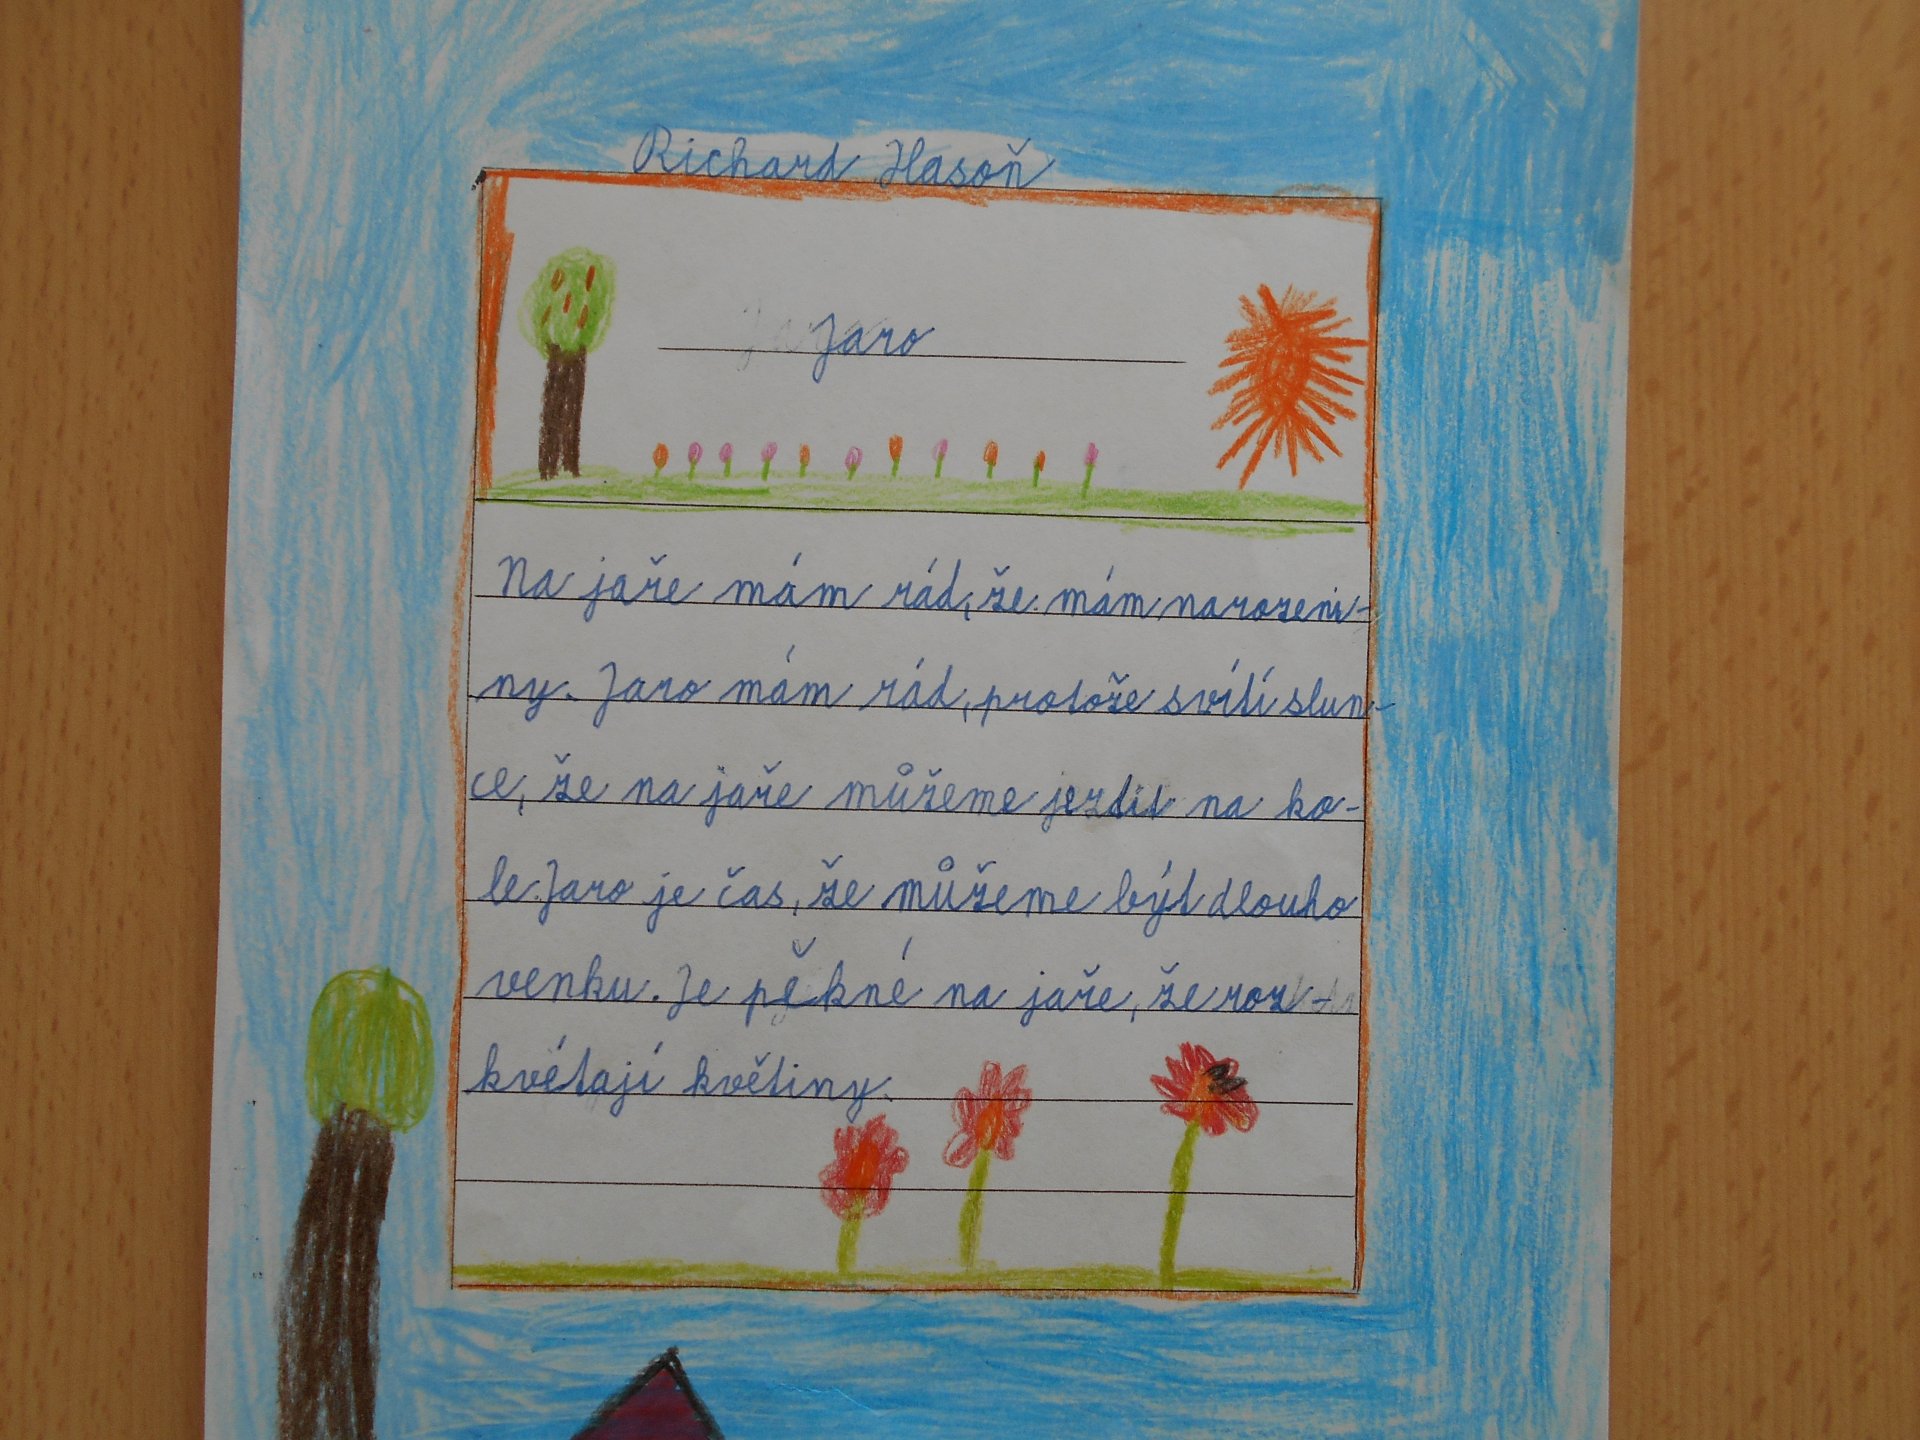 Richard Hasoň
Jaro
Na jaře mám rád, že mám narozeni-
ny. Jaro mám rád, protože svítí slun-
ce, že na jaře můžeme jezdit na ko-
le. Jaro je čas, že můžeme být dlouho
venku. Je pěkné na jaře, že roz-
kvétají květiny.